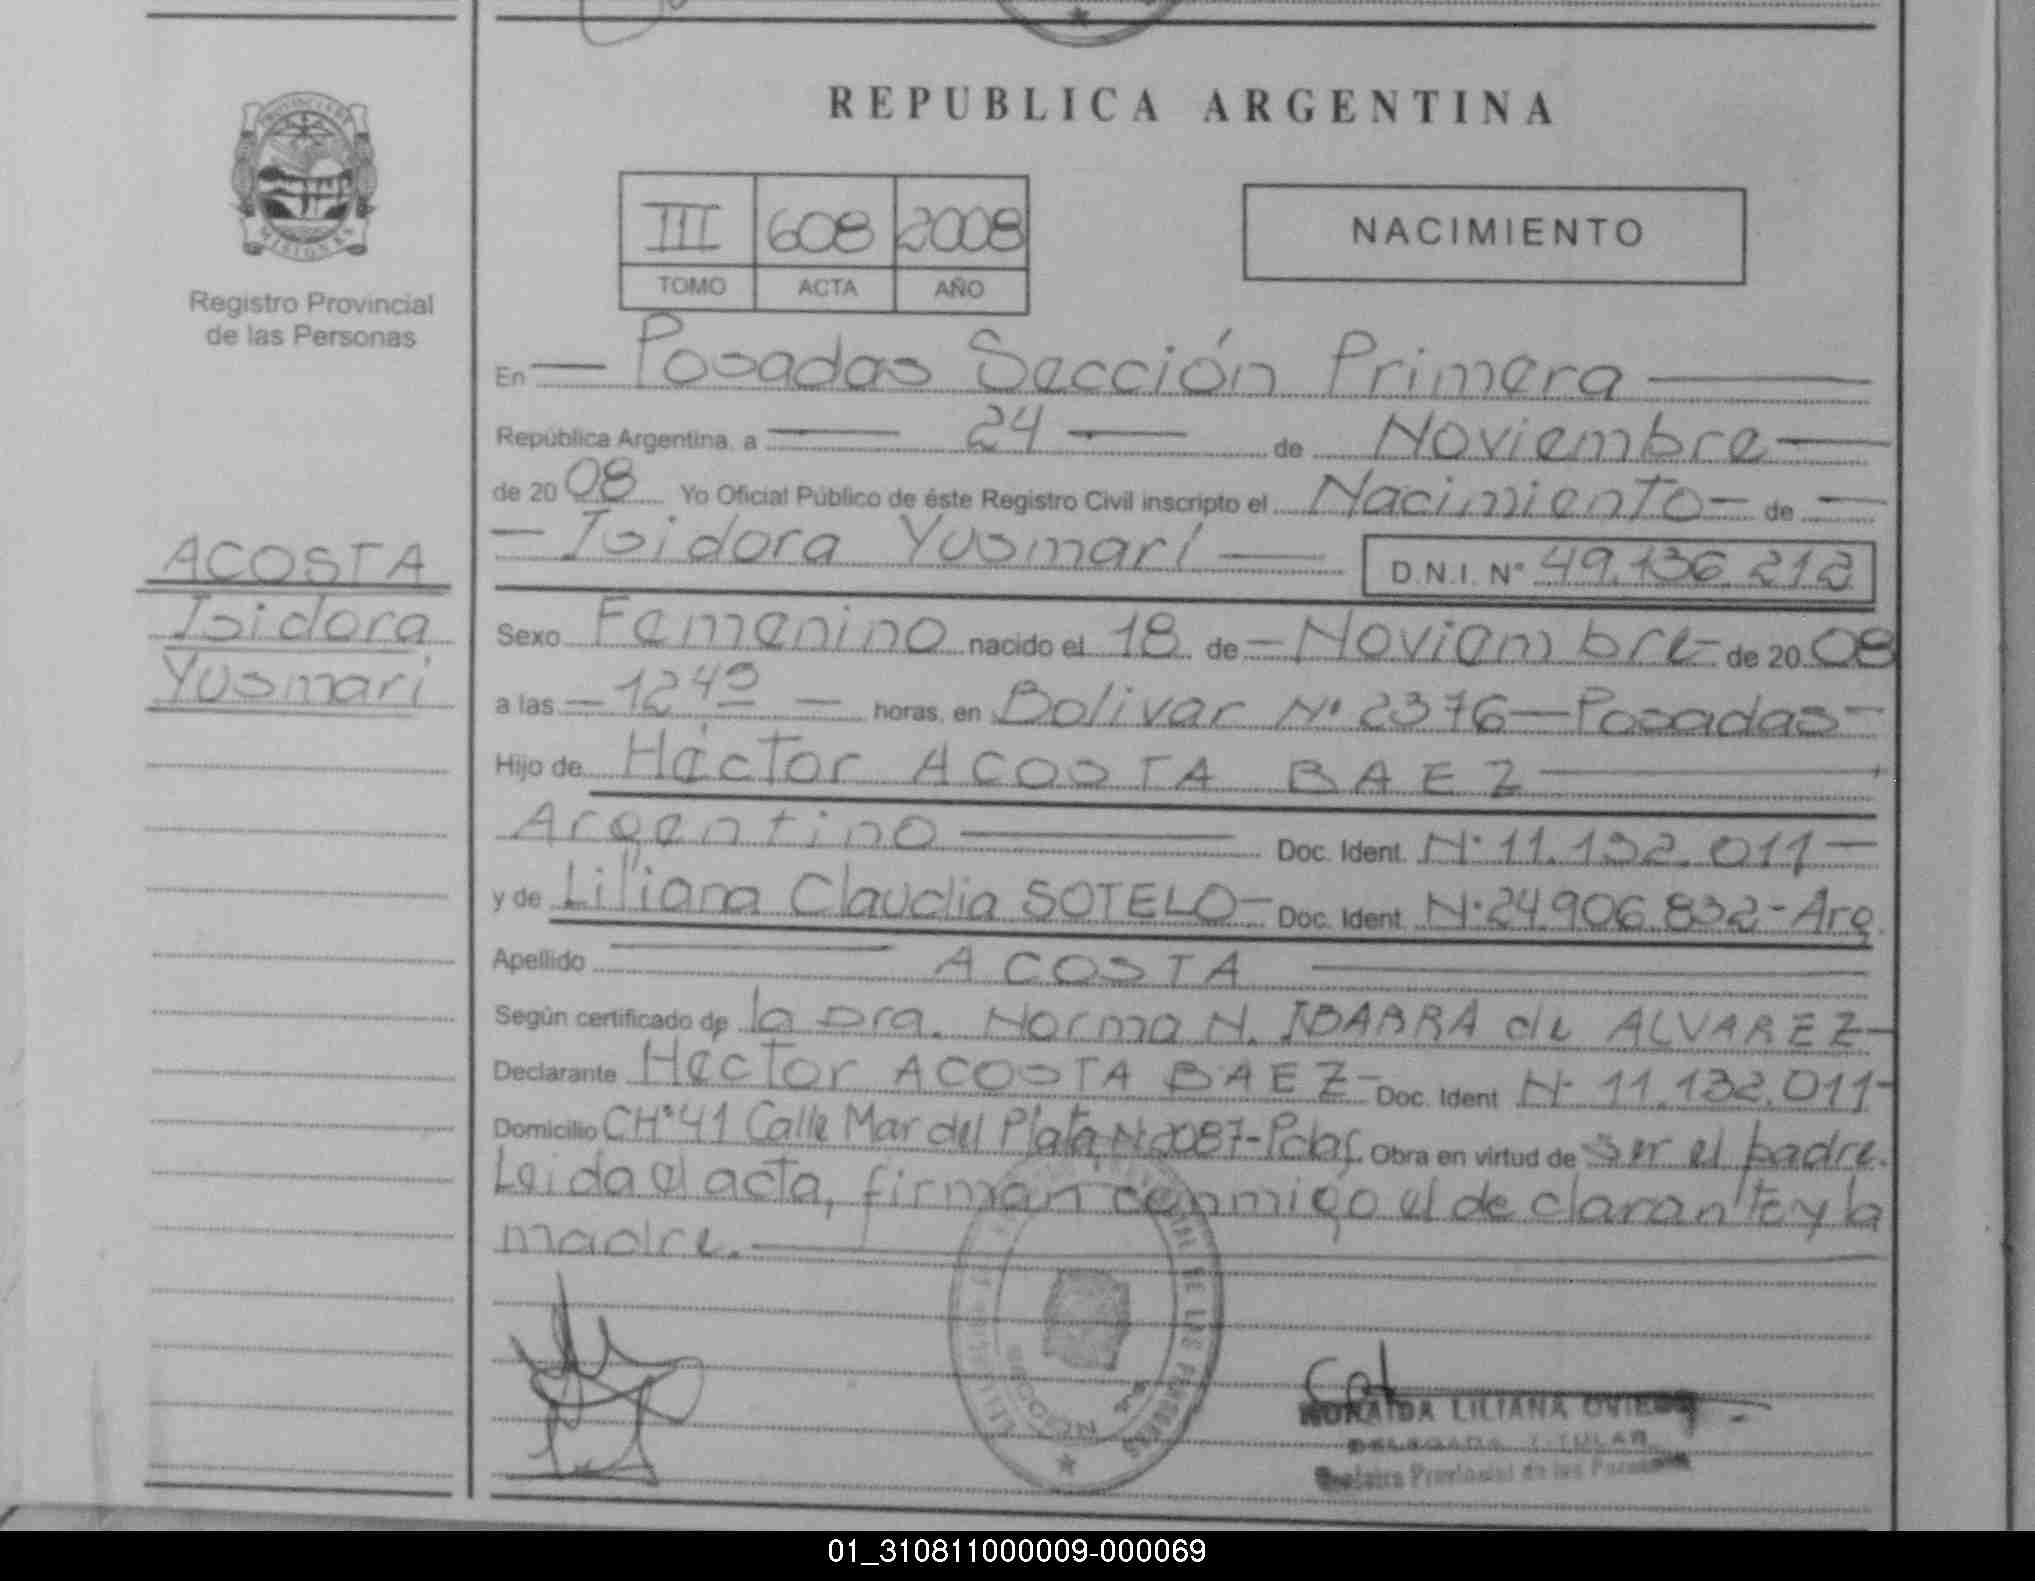 REPUBLICA ARGENTINA
III 608 2008
TOMO ACTA AÑO
NACIMIENTO
Registro Provincial
de las Personas
ACOSTA
Isidora
Yusmarí
En — Posadas Sección Primera —
República Argentina, a — 24 — de Noviembre —
de 2008 Yo Oficial Público de éste Registro Civil inscripto el Nacimiento — de —
— Isidora Yusmarí — D.N.I. Nº 49.136.212
Sexo Femenino nacido el 18 de — Noviembre — de 2008
a las — 12 45 — horas, en Bolivar Nº 2376 — Posadas —
Hijo de Héctor ACOSTA BAEZ —
Argentino — Doc. Ident. Nº 11.132.011 —
y de Liliana Claudia SOTELO — Doc. Ident. Nº 24.906.832 - Arg.
Apellido — ACOSTA —
Según certificado de la Dra. Norma N. IBARRA de ALVAREZ —
Declarante Héctor ACOSTA BAEZ — Doc. Ident Nº 11.132.011 -
Domicilio CHº 41 Calle Mar del Plata Nº 2087 - Pdas. Obra en virtud de ser el padre.
Leida el acta, firman conmigo el declarante y la
madre. —
DELEGADA TITULAR
Registro Provincial de las Personas
01_310811000009-000069